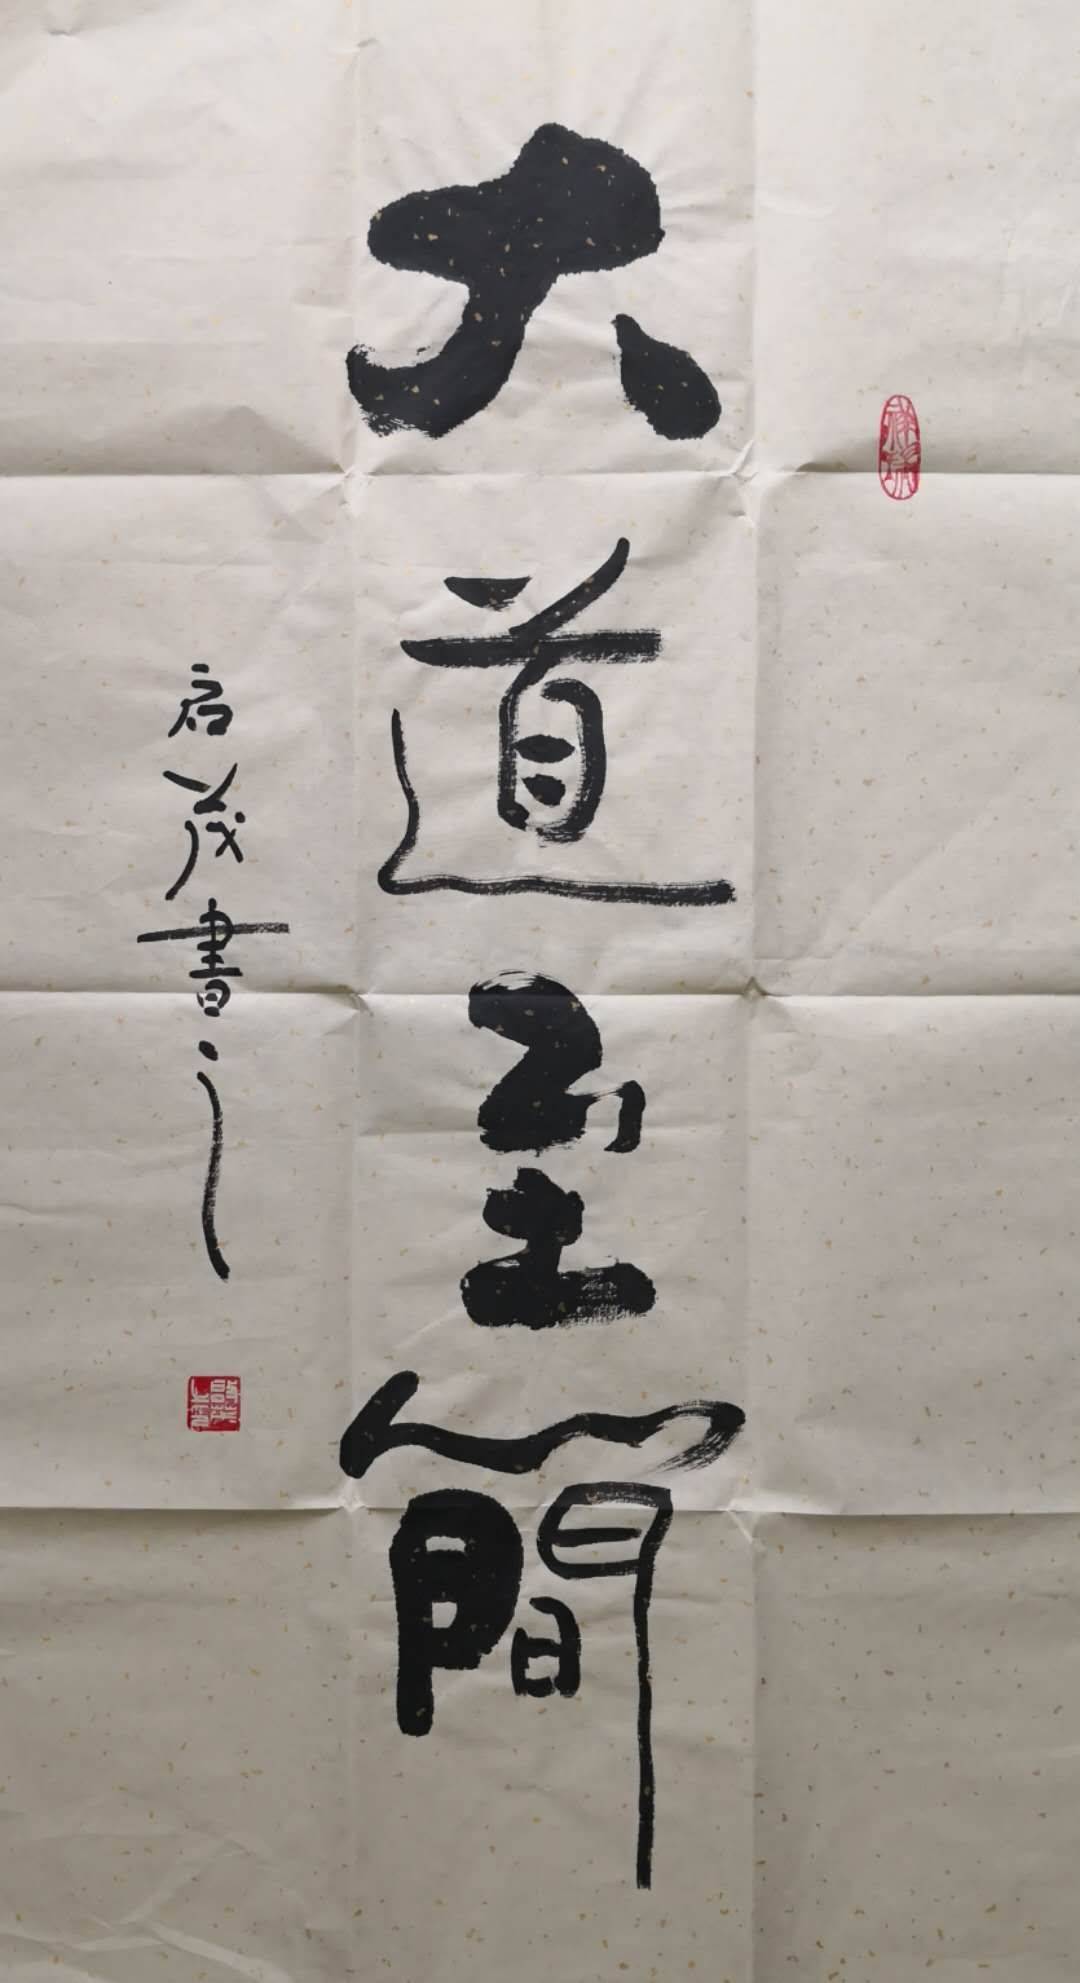 大道至簡
启茂書之